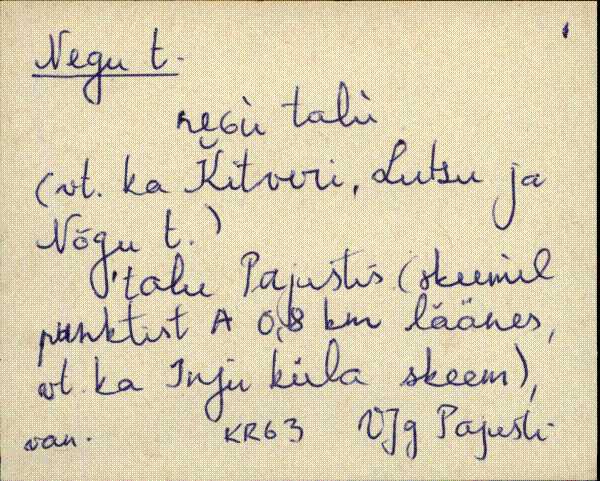 Negu t.
neGù talù
(vt. ka Kitveri, Lutsu ja
Nõgu t.)
'talu Pajustis (skeemil
punktist A 0,8 km läänes,
vt. ka Inju küla skeem),
van. KR63 VJg Pajusti